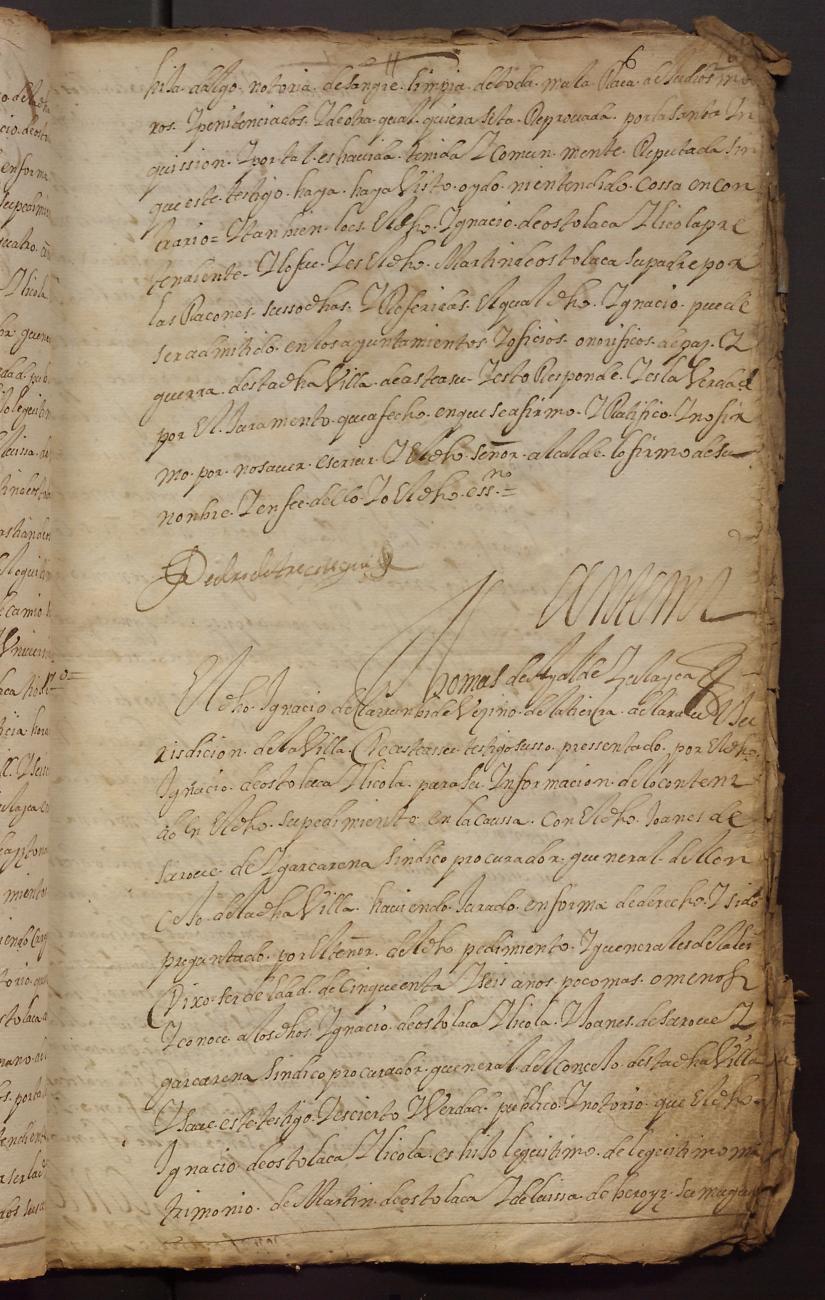 6
hija dalgo. notoria. de sangre. limpia. de toda. mala Raça. de Judios mo
ros. Y penitenciados. Y de otra. qual. quiera seta. Reprouada. por la santa In
quission. Y por tal. es hauida. tenida Y comun. mente. Reputada sin
que este. testigo. haya. haya Visto. oydo. ni entendido. cossa en con
trario= Y tanbien. lo es. El dho. Ignacio. de ostolaca Ylicola pre
tendiente. Y lo fue. Y es El dho. Martin de ostolaca su padre por
las Raçones. sussodhas. Y Referidas. El qual dho. Ygnacio. puede
ser admitido. en los ayuntamientos Y oficios. onorificos. de paz. Y
guerra. desta dha Villa. de asteasu. Y esto Responde. Y es la Verdad
por El. Juramento. que a fecho. en que se afirmo. Y Ratifico. Y no fir
mo. por. no sauer. escriuir. Y El dho. señor. alcalde. lo firmo de su
nonbre. Y en fee. dello. Yo El dho. essno=
Pedro de
ante mi
Thomas de
El dho. Ignacio de Larrunbide Vezino. de la tierra. de Ju
risdicion. de la Villa. testigo susso. pressentado. por El dho.
Ignacio. de ostolaca Ylicola. para su Informacion. de lo conteni
do En El dho. su pedimiento. en la caussa. con El dho. Joanes de
saroue. de Ygarcarena sindico procurador. gueneral. del con
cejo. de la dha Villa. hauiendo. Jurado. en forma de derecho. Y sido
preguntado. por El tenor. del dho pedimiento. Y guenerales de la lei
Dixo. ser de hedad. de cinquenta Y seis años. poco mas. o menos Y
Y conoce. a los dhos. Ygnacio. de ostolaca Ylicola. Y Joanes. de saroue Y
garcarena sindico procurador. gueneral. del concejo. desta dha Villa
Y saue. este. testigo. Y es cierto Y Verdad. publico. Y notorio. que El dho.
Ignacio de ostolaca Ylicola. es hijo leguitimo. de leguitimo ma
trimonio. de Martin. de ostolaca Y de luissa. de heroyz. su muger